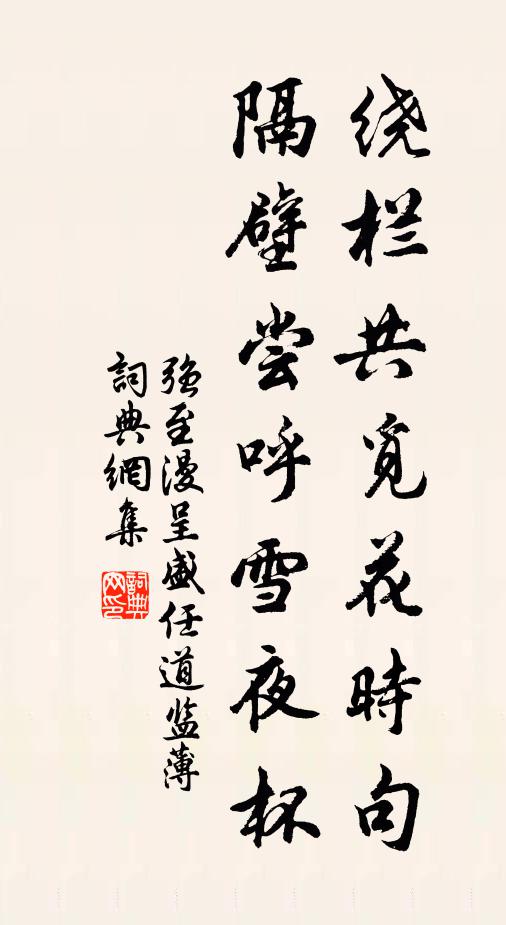 绕栏共觅花時句
隔壁尝呼雪夜杯
強至漫呈盛任道监薄
詞典網集
詞典
网印